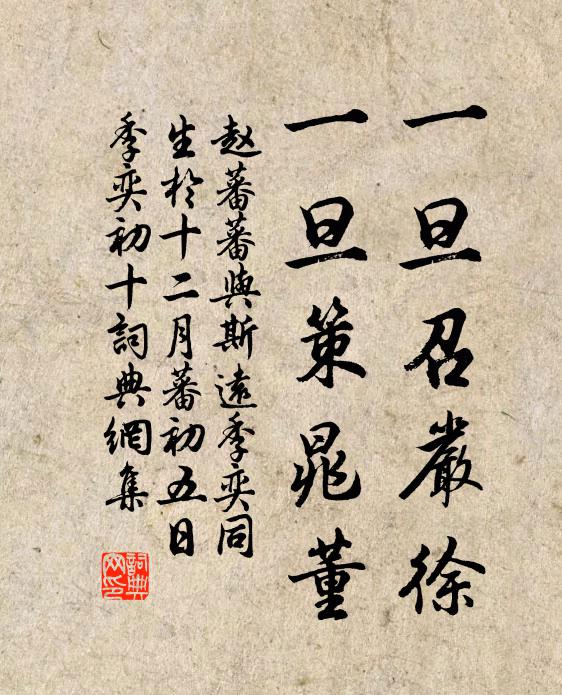 一旦召嚴徐
一旦策晁董
赵蕃蕃與斯遠季奕同
生於十二月蕃初五日
季奕初十詞典網集
詞典网印